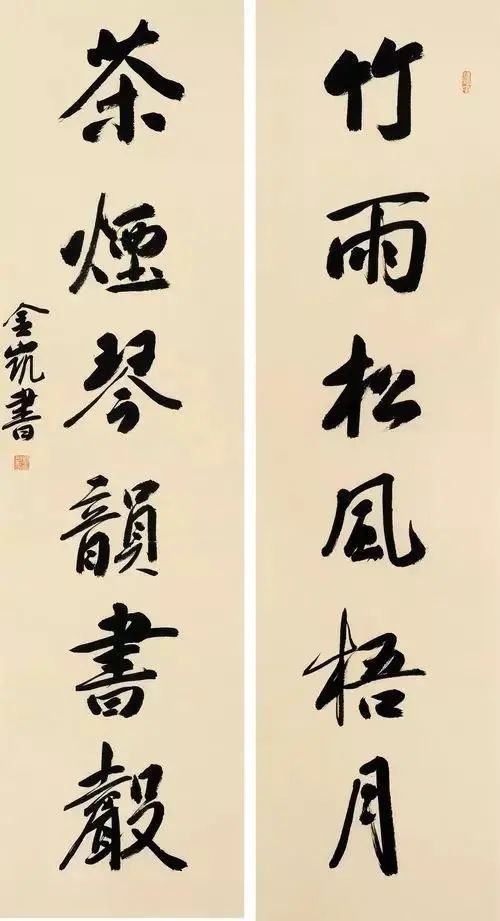 竹雨松風梧月
茶煙琴韻書聲
金凱書